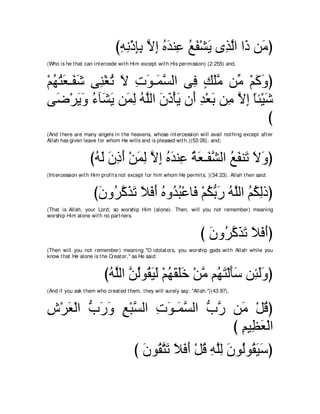 (مَن ذَا الَّذِى يَشْفَعُ عِندَهُ إِلاَّ بِإِذْنِهِ)
(Who is he that can intercede with Him except with His permission) (2:255) and,
(وَكَمْ مِّن مَّلَكٍ فِى السَّمَـوَتِ لاَ تُغْنِى شَفَـعَتُهُمْ
شَيْئاً إِلاَّ مِن بَعْدِ أَن يَأْذَنَ اللَّهُ لِمَن يَشَآءُ وَيَرْضَى
)
(And there are many angels in the heavens, whose intercession will avail nothing except after Allah has given leave for whom He wills and is pleased with )(53:26). and;
(وَلاَ تَنفَعُ الشَّفَـعَةُ عِندَهُ إِلاَّ لِمَنْ أَذِنَ لَهُ)
(Intercession with Him profits not except for him whom He permits. )(34:23). Allah then said:
(ذَلِكُمُ اللَّهُ رَبُّكُمْ فَاعْبُدُوهُ أَفَلاَ تَذَكَّرُونَ)
(That is Allah, your Lord; so worship Him (alone). Then, will you not remember) meaning worship Him alone with no partners.
(أَفَلاَ تَذَكَّرُونَ )
(Then will you not remember) meaning "O idolators, you worship gods with Allah while you know that He alone is the Creator," as He said:
(وَلَئِن سَأَلْتَهُم مَّنْ خَلَقَهُمْ لَيَقُولُنَّ اللَّهُ)
(And if you ask them who created them, they will surely say: "Allah.")(43:87),
(قُلْ مَن رَّبُّ السَّمَـوَتِ السَّبْعِ وَرَبُّ الْعَرْشِ
الْعَظِيمِ )
(سَيَقُولُونَ لِلَّهِ قُلْ أَفَلاَ تَتَّقُونَ )